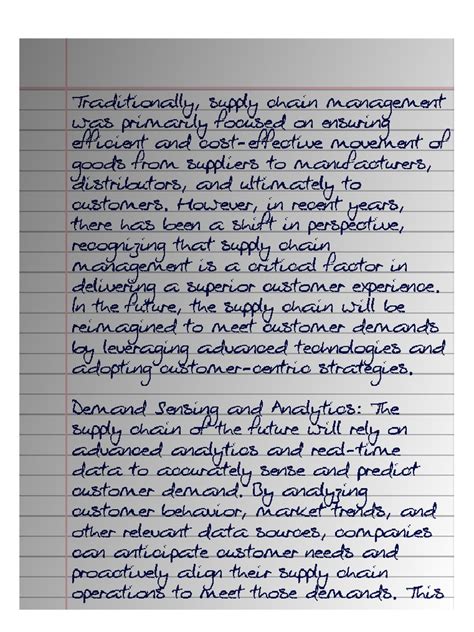 Traditionally, supply chain management
was primarily focused on ensuring
efficient and cost-effective movement of
goods from suppliers to manufacturers,
distributors, and ultimately to
customers. However, in recent years,
there has been a shift in perspective,
recognizing that supply chain
management is a critical factor in
delivering a superior customer experience.
In the future, the supply chain will be
reimagined to meet customer demands
by leveraging advanced technologies and
adopting customer-centric strategies.
Demand Sensing and Analytics: The
supply chain of the future will rely on
advanced analytics and real-time
data to accurately sense and predict
customer demand. By analyzing
customer behavior, market trends, and
other relevant data sources, companies
can anticipate customer needs and
proactively align their supply chain
operations to meet those demands. This